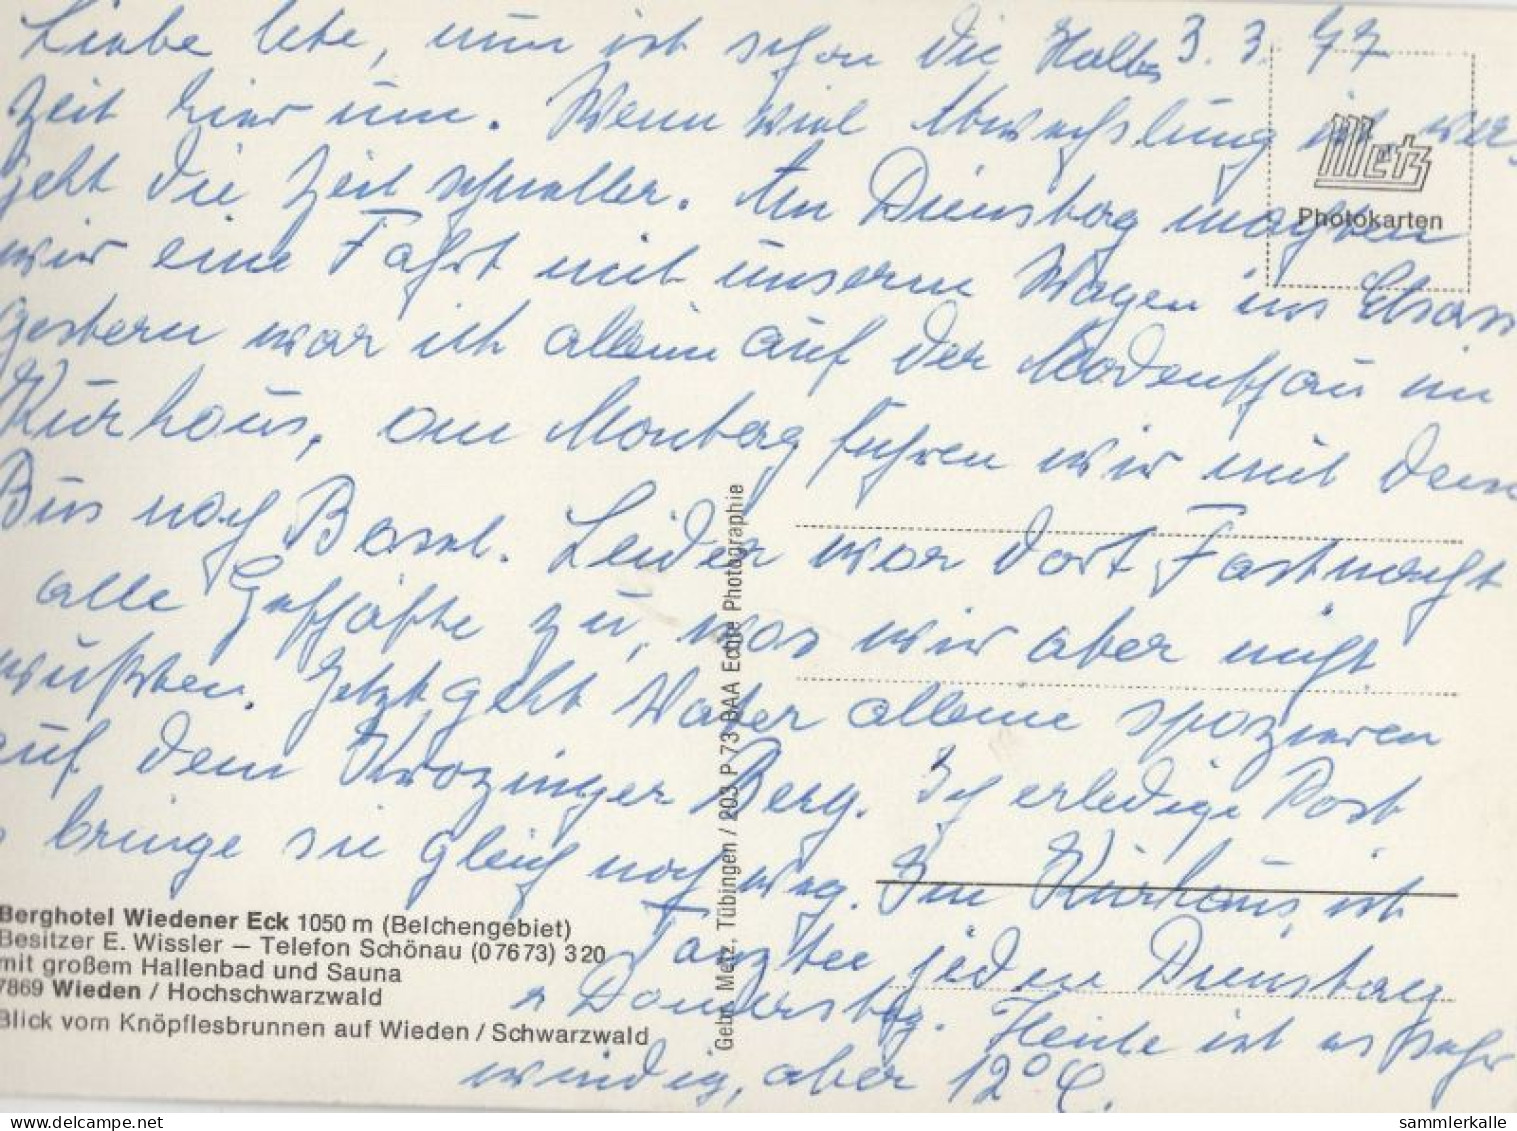 Liebe , nun ist schon die Halbe 3. 3. 77
Zeit hier um. Wenn viel Abwechslung ist
geht die Zeit schneller. Am Dienstag machten
wir eine Fahrt mit unserm Wagen ins Elsass
Gestern war ich allein auf der Modenschau im
Kurhaus, am Montag fuhren wir mit dem
Bus nach Basel. Leider war dort Fastnacht
alle Geschäfte zu, was wir aber nicht
wußten. Jetzt geht Vater alleine spazieren
auf dem Krozinger Berg. Ich erledige Post
bringe sie gleich noch weg. Im Kurhaus ist
Tanztee jeden Dienstag
Donnerstag. Heute ist es sehr
windig, aber 12° C.
Metz
Photokarten
Berghotel Wiedener Eck 1050 m (Belchengebiet)
Besitzer E. Wissler – Telefon Schönau (07673) 320
mit großem Hallenbad und Sauna
7869 Wieden / Hochschwarzwald
Blick vom Knöpflesbrunnen auf Wieden / Schwarzwald
Gebr. Metz, Tübingen / 203 P 73 BAA Echte Photographie
www.delcampe.net
sammlerkalle